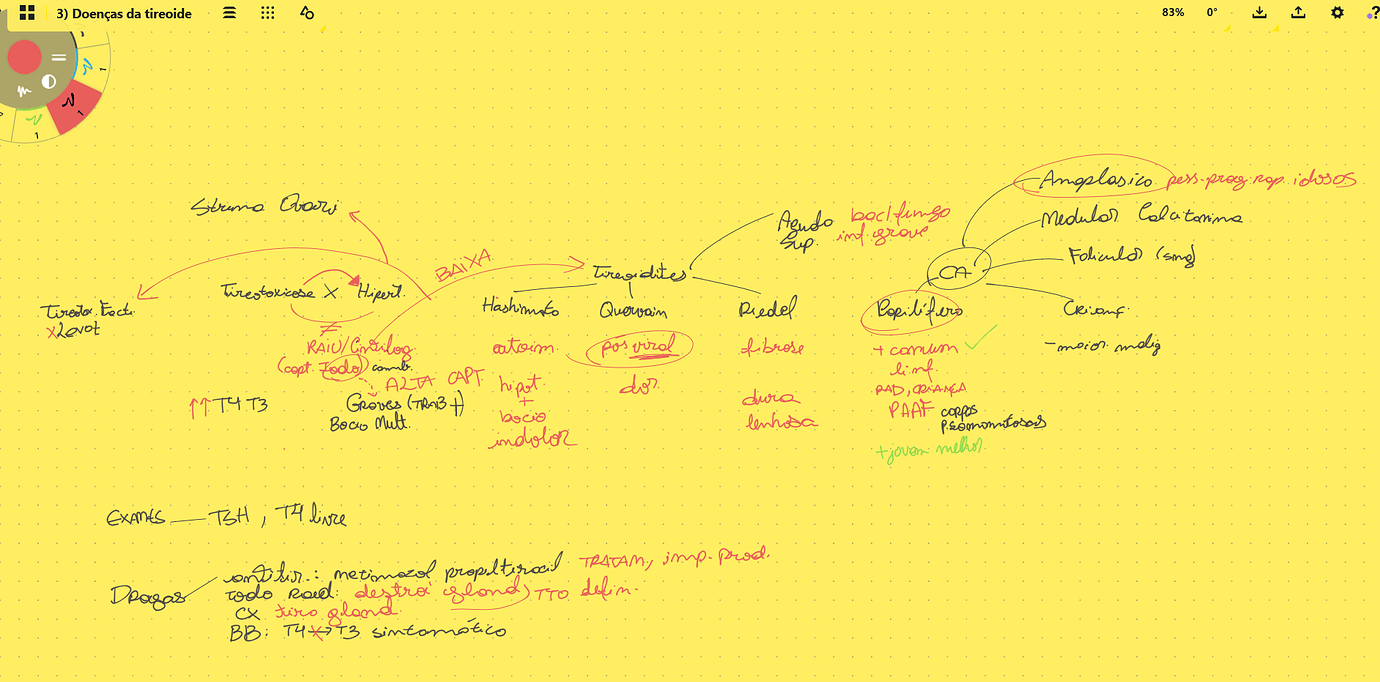 3) Doenças da tireoide
83%
0°
1
1
1
Struma Ovari
Tireotoxicose X Hipert.
Tireotox. Facti.
X Levot
≠
RAIU/Cintilog
(capt. Iodo) comb.
ALTA CAPT.
Graves (TRAB +)
Bocio Mult.
↑↑ T4 T3
BAIXA
Tireoidites
Agudo
Sup.
bac/fungo
inf. grave
Hashimoto
autoim.
hipot.
+
bocio
indolor
Quervain
pos viral
dor.
Riedel
fibrose
dura
lenhosa
CA
Anaplasico pess. prog. rap. idosos
Medular Calcitonina
Folicular (sing)
Crianç.
- maior malig
Papilífero
+ comum
linf.
RAD, CRIANÇA
PAAF corpos
psamomatosos
+ jovem melhor.
EXAMES TSH, T4 livre
Drogas
antitir.: metimazol propiltiracil TRATAM, imp. prod.
Iodo Rad: destroi (gland) TTO defin.
CX tiro gland.
BB: T4 X→ T3 sintomático